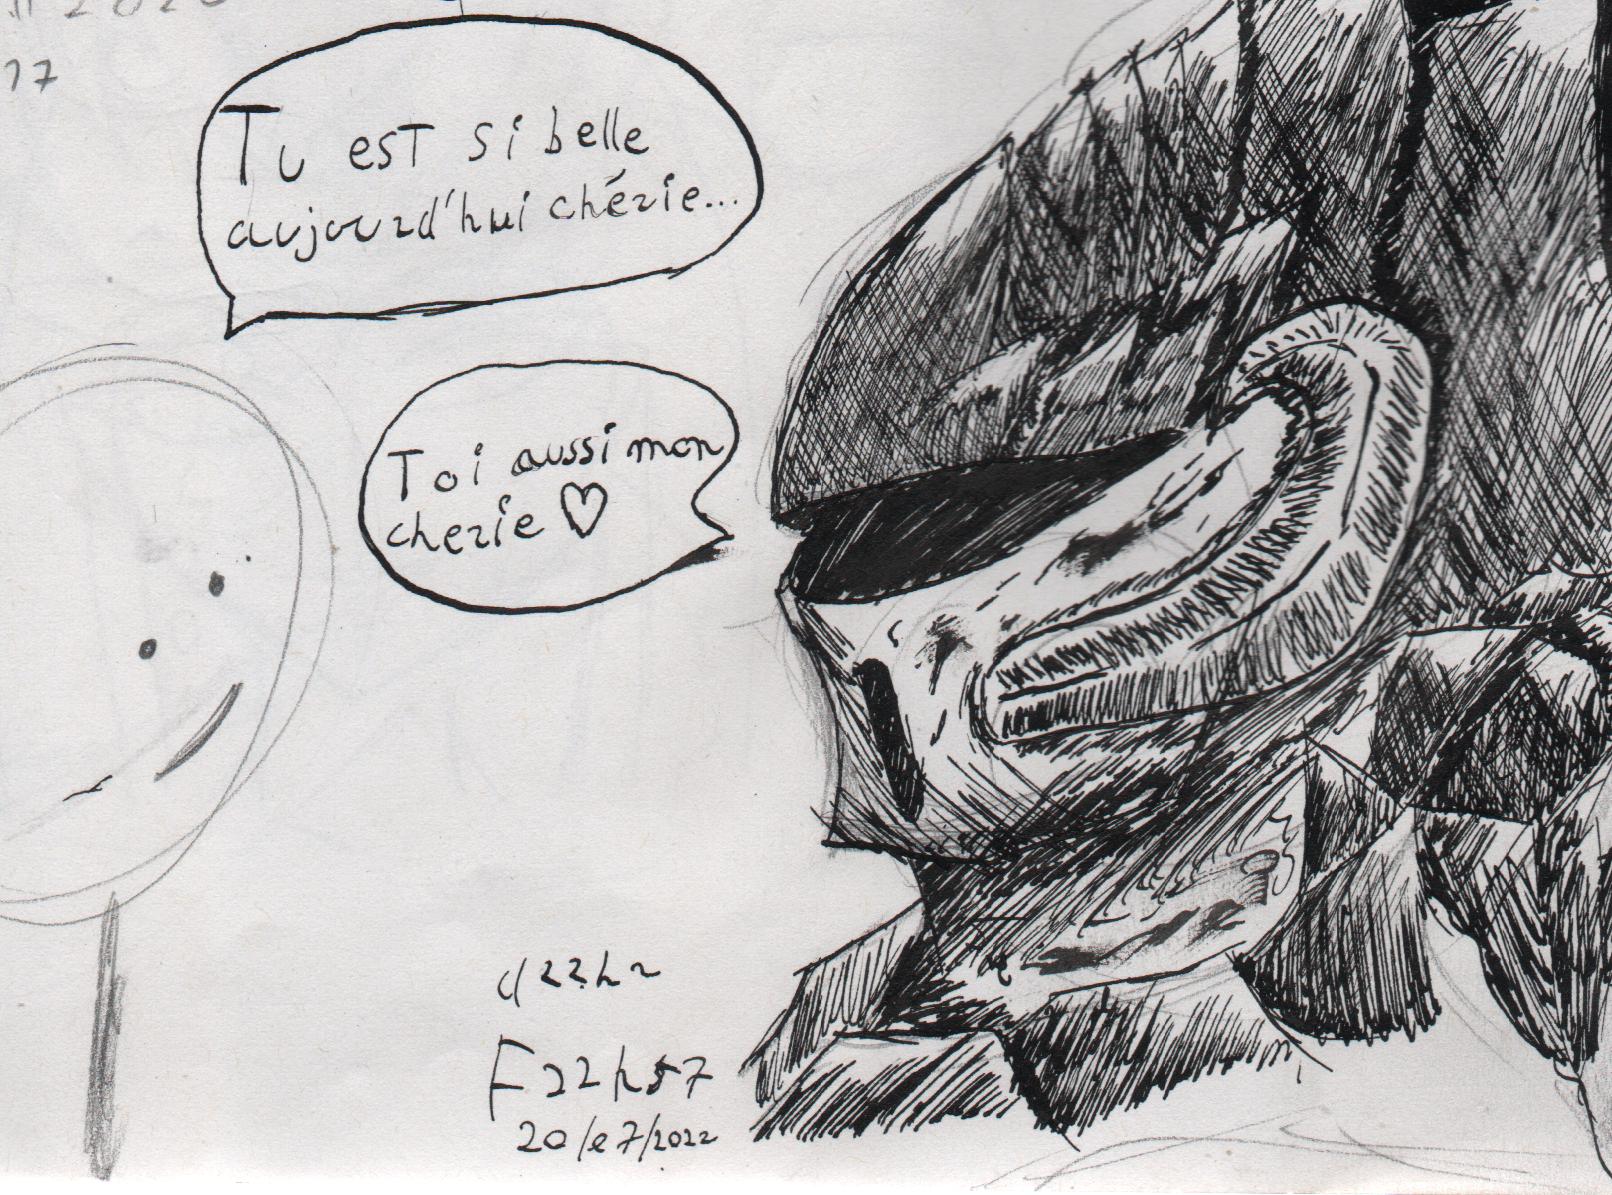 17
Tu est si belle
aujourd'hui chérie...
Toi aussi mon
cherie ♡
d22h2
F22h57
20/07/2022